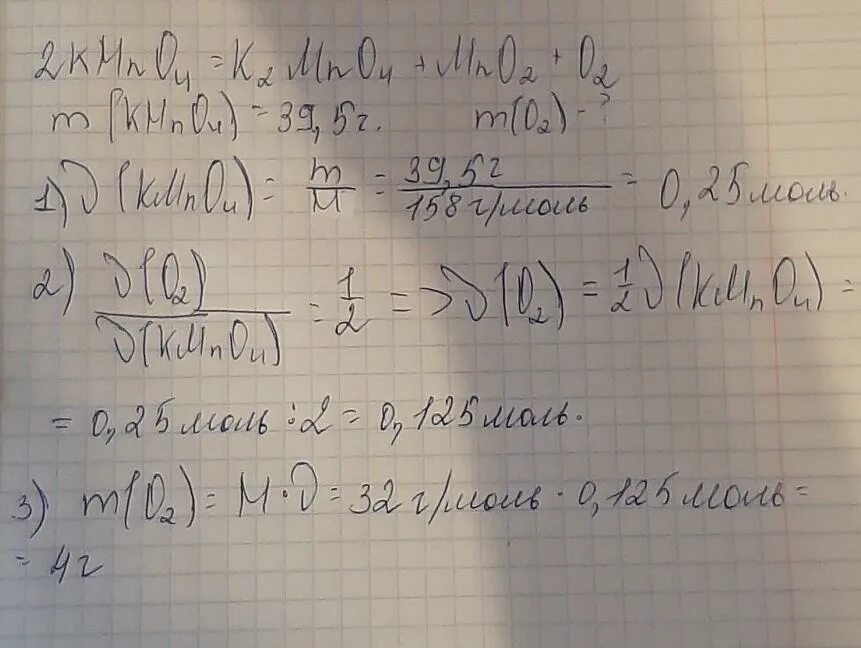 2KMnO4 = K2MnO4 + MnO2 + O2
m (KMnO4) = 39,5г. m(O2) - ?
1) ν (KMnO4) = m/M = 39,5г/158г/моль = 0,25моль.
2) ν(O2)/ν(KMnO4) = 1/2 => ν(O2) = 1/2 ν(KMnO4) =
= 0,25моль : 2 = 0,125моль.
3) m(O2) = M · ν = 32г/моль · 0,125моль =
= 4г